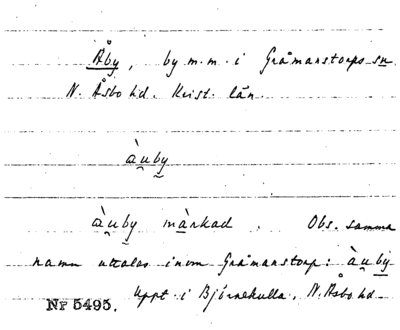 Åby, by m.m. i Gråmanstorps sn.
N. Åsbo hd. Krist. län.
àu̯by̰
àu̯by̰ màrkad. Obs. samma
namn uttalas inom Gråmanstorp: àu̯by̰
Uppt. i Björnekulla, N. Åsbo hd.
NF 5495.